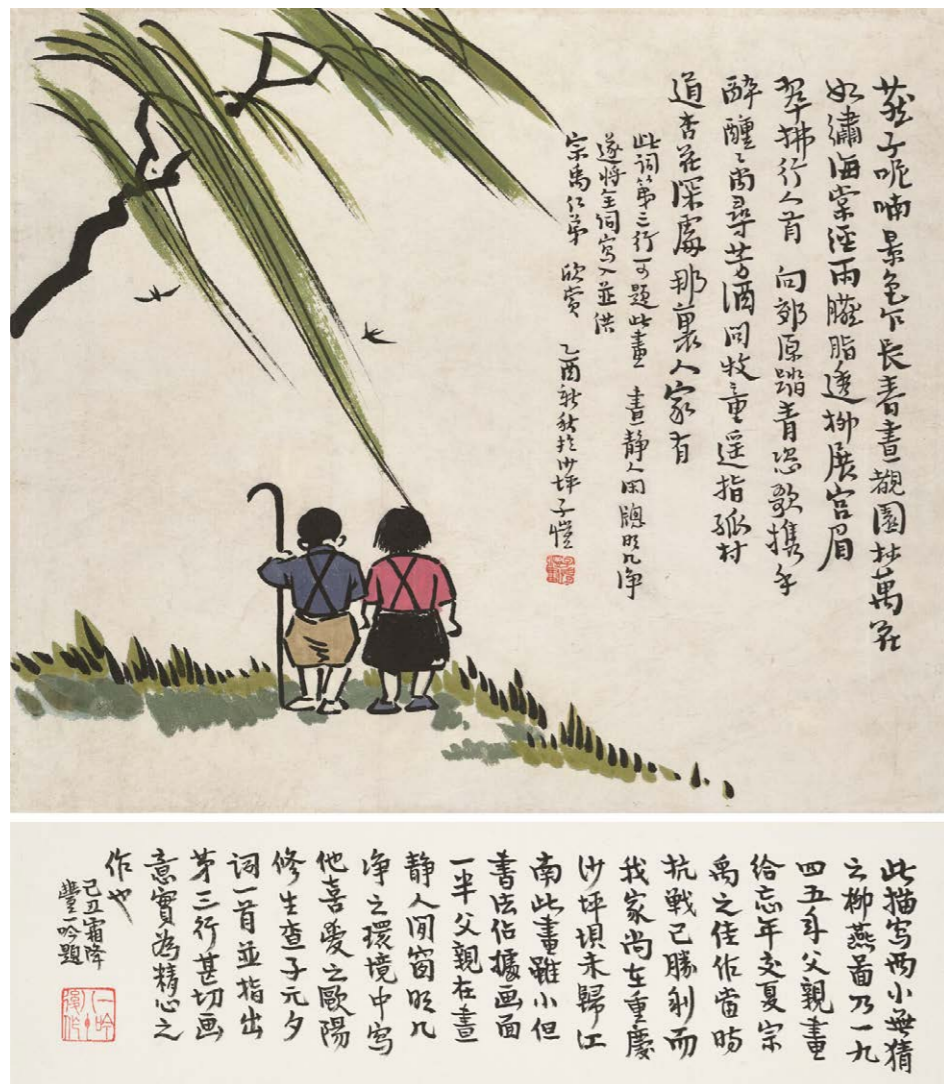 燕子呢喃景色乍长春晝覩園林萬花
如繡海棠經雨臙脂透柳展宫眉
翠拂行人首 向郊原踏青恣歌攜手
醉醺醺尚尋芳酒问牧童遥指孤村
道杏花深處那裏人家有
此词第三行可題此畫 晝静人閒牕明几净
遂将全词寫入並供
宗禹仁弟 欣赏 乙酉新秋於沙坪子愷
此描写两小無猜
之柳燕啚乃一九
四五年父親畫
给忘年交夏宗
禹之佳作當時
抗戰已勝利而
我家尚在重慶
沙坪埧未歸江
南此畫雖小但
書法佔據画面
一半父親在晝
静人閒窗明几
净之環境中寫
他喜愛之歐陽
修生查子元夕
词一首並指出
第三行甚切画
意實為精心之
作也
己丑霜降
豐一吟題